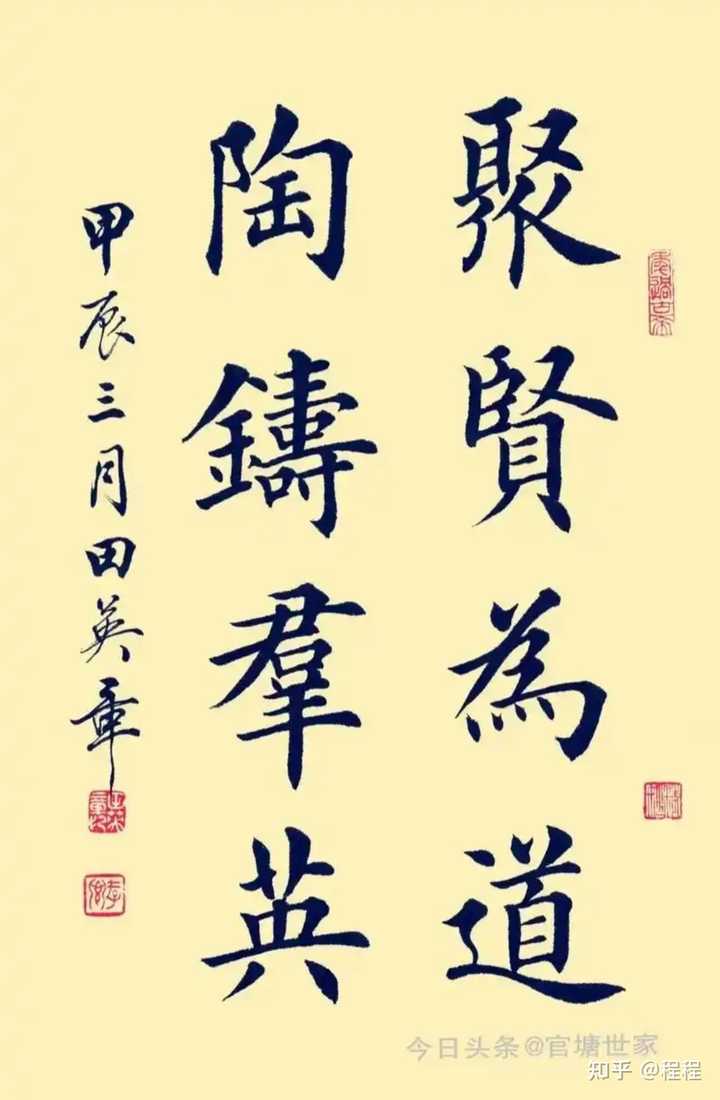 聚賢為道
陶鑄羣英
甲辰三月田英章
今日头条@官塘世家
知乎 @程程